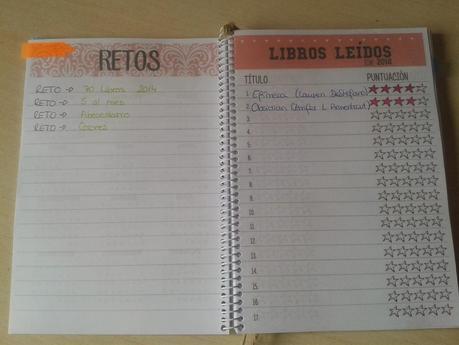 RETOS
RETO → 70 libros 2014
RETO → 5 al mes
RETO → Abecedario
RETO → Colores
LIBROS LEÍDOS
EN 2014
TÍTULO PUNTUACIÓN
1. Efímera (Lauren DeStefano)
2. Obsidian (Jennifer L. Armentrout)
3.
4.
5.
6.
7.
8.
9.
10.
11.
12.
13.
14.
15.
16.
17.